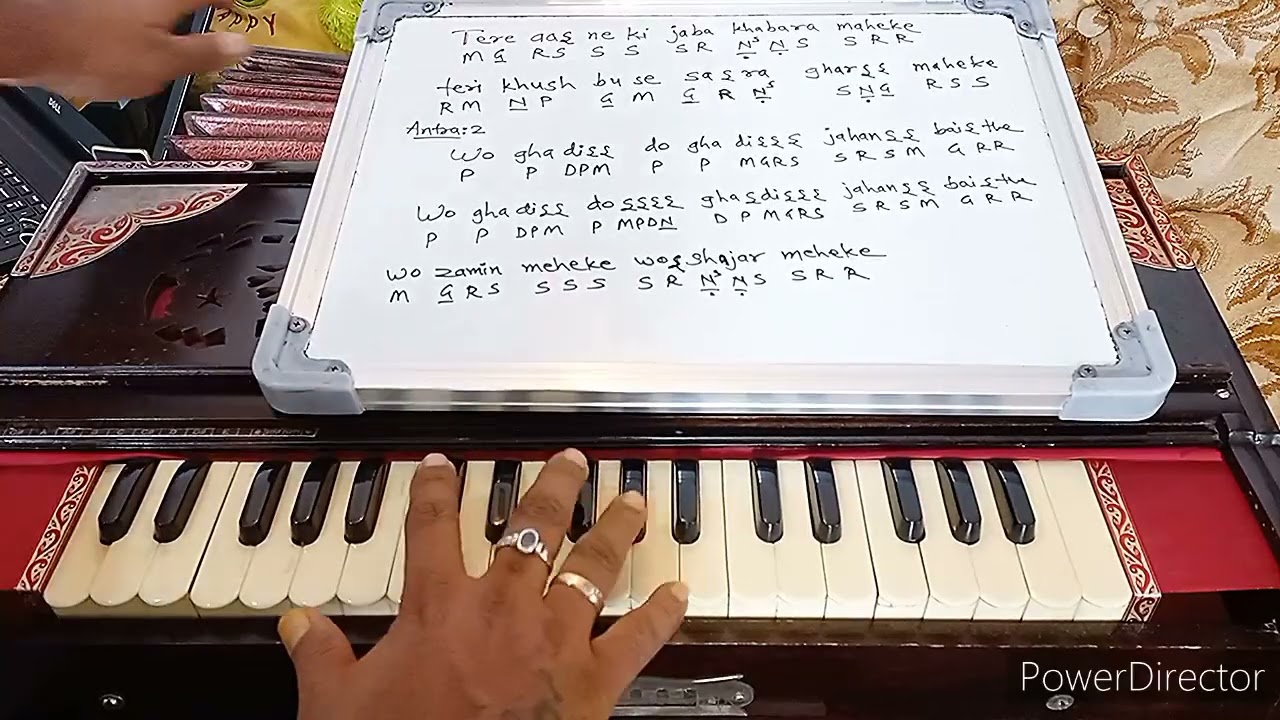 Tere aaς ne ki jaba khabara maheke
M G̲ RS S S SR Ṇ̲ˢ Ṇ̲ S S R R
teri khush bu se saςra gharςς maheke
R M N̲ P G̲ M G̲ R Ṇ̲ˢ SṆ̲G̲ R S S
Antra:2
Wo ghadiςς do ghadiςςς jahanςς baiςthe
P P DPM P P MGRS SRSM G RR
Wo ghadiςς doςςςς ghaςdiςςςς jahanςς baiςthe
P P DPM P MPDN̲ D PMGRS SRSM G R R
Wo zamin meheke woςshajar meheke
M G̲ R S S S S S R Ṇ̲ˢ Ṇ̲ S S R R
DELL
PowerDirector